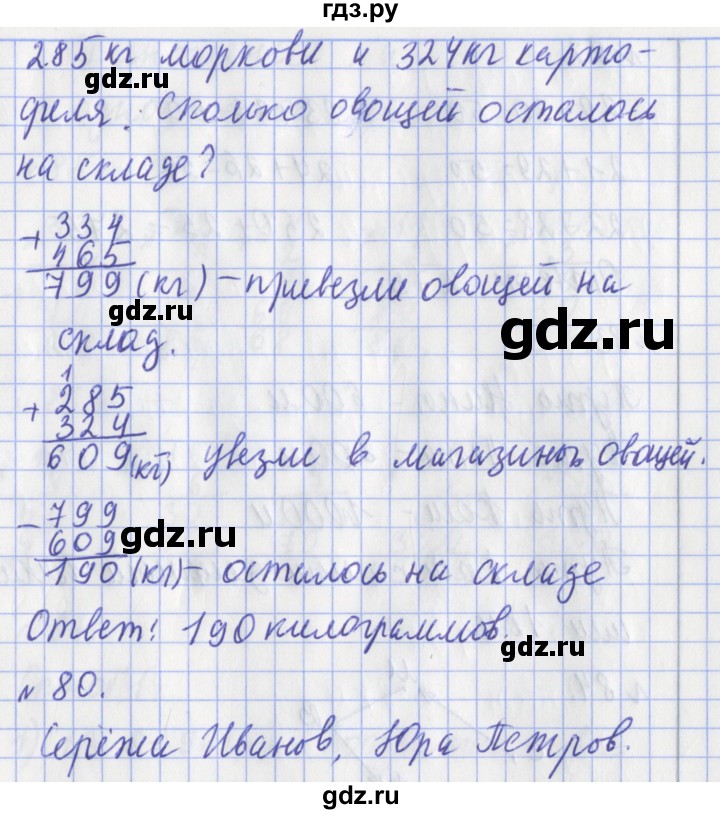 гдз.ру
285 кг моркови и 324 кг карто-
gdz.ru
феля. Сколько овощей осталось
на складе?
+ 334
465
799 (кг) - привезли овощей на
gdz.ru
склад.
gdz.ru
1
+ 285
324
609 (кг) увезли в магазины овощей.
- 799
609
gdz.ru
190 (кг) - осталось на складе
Ответ: 190 килограммов.
gdz.ru
№ 80.
Серёжа Иванов, Юра Петров.
gdz.ru